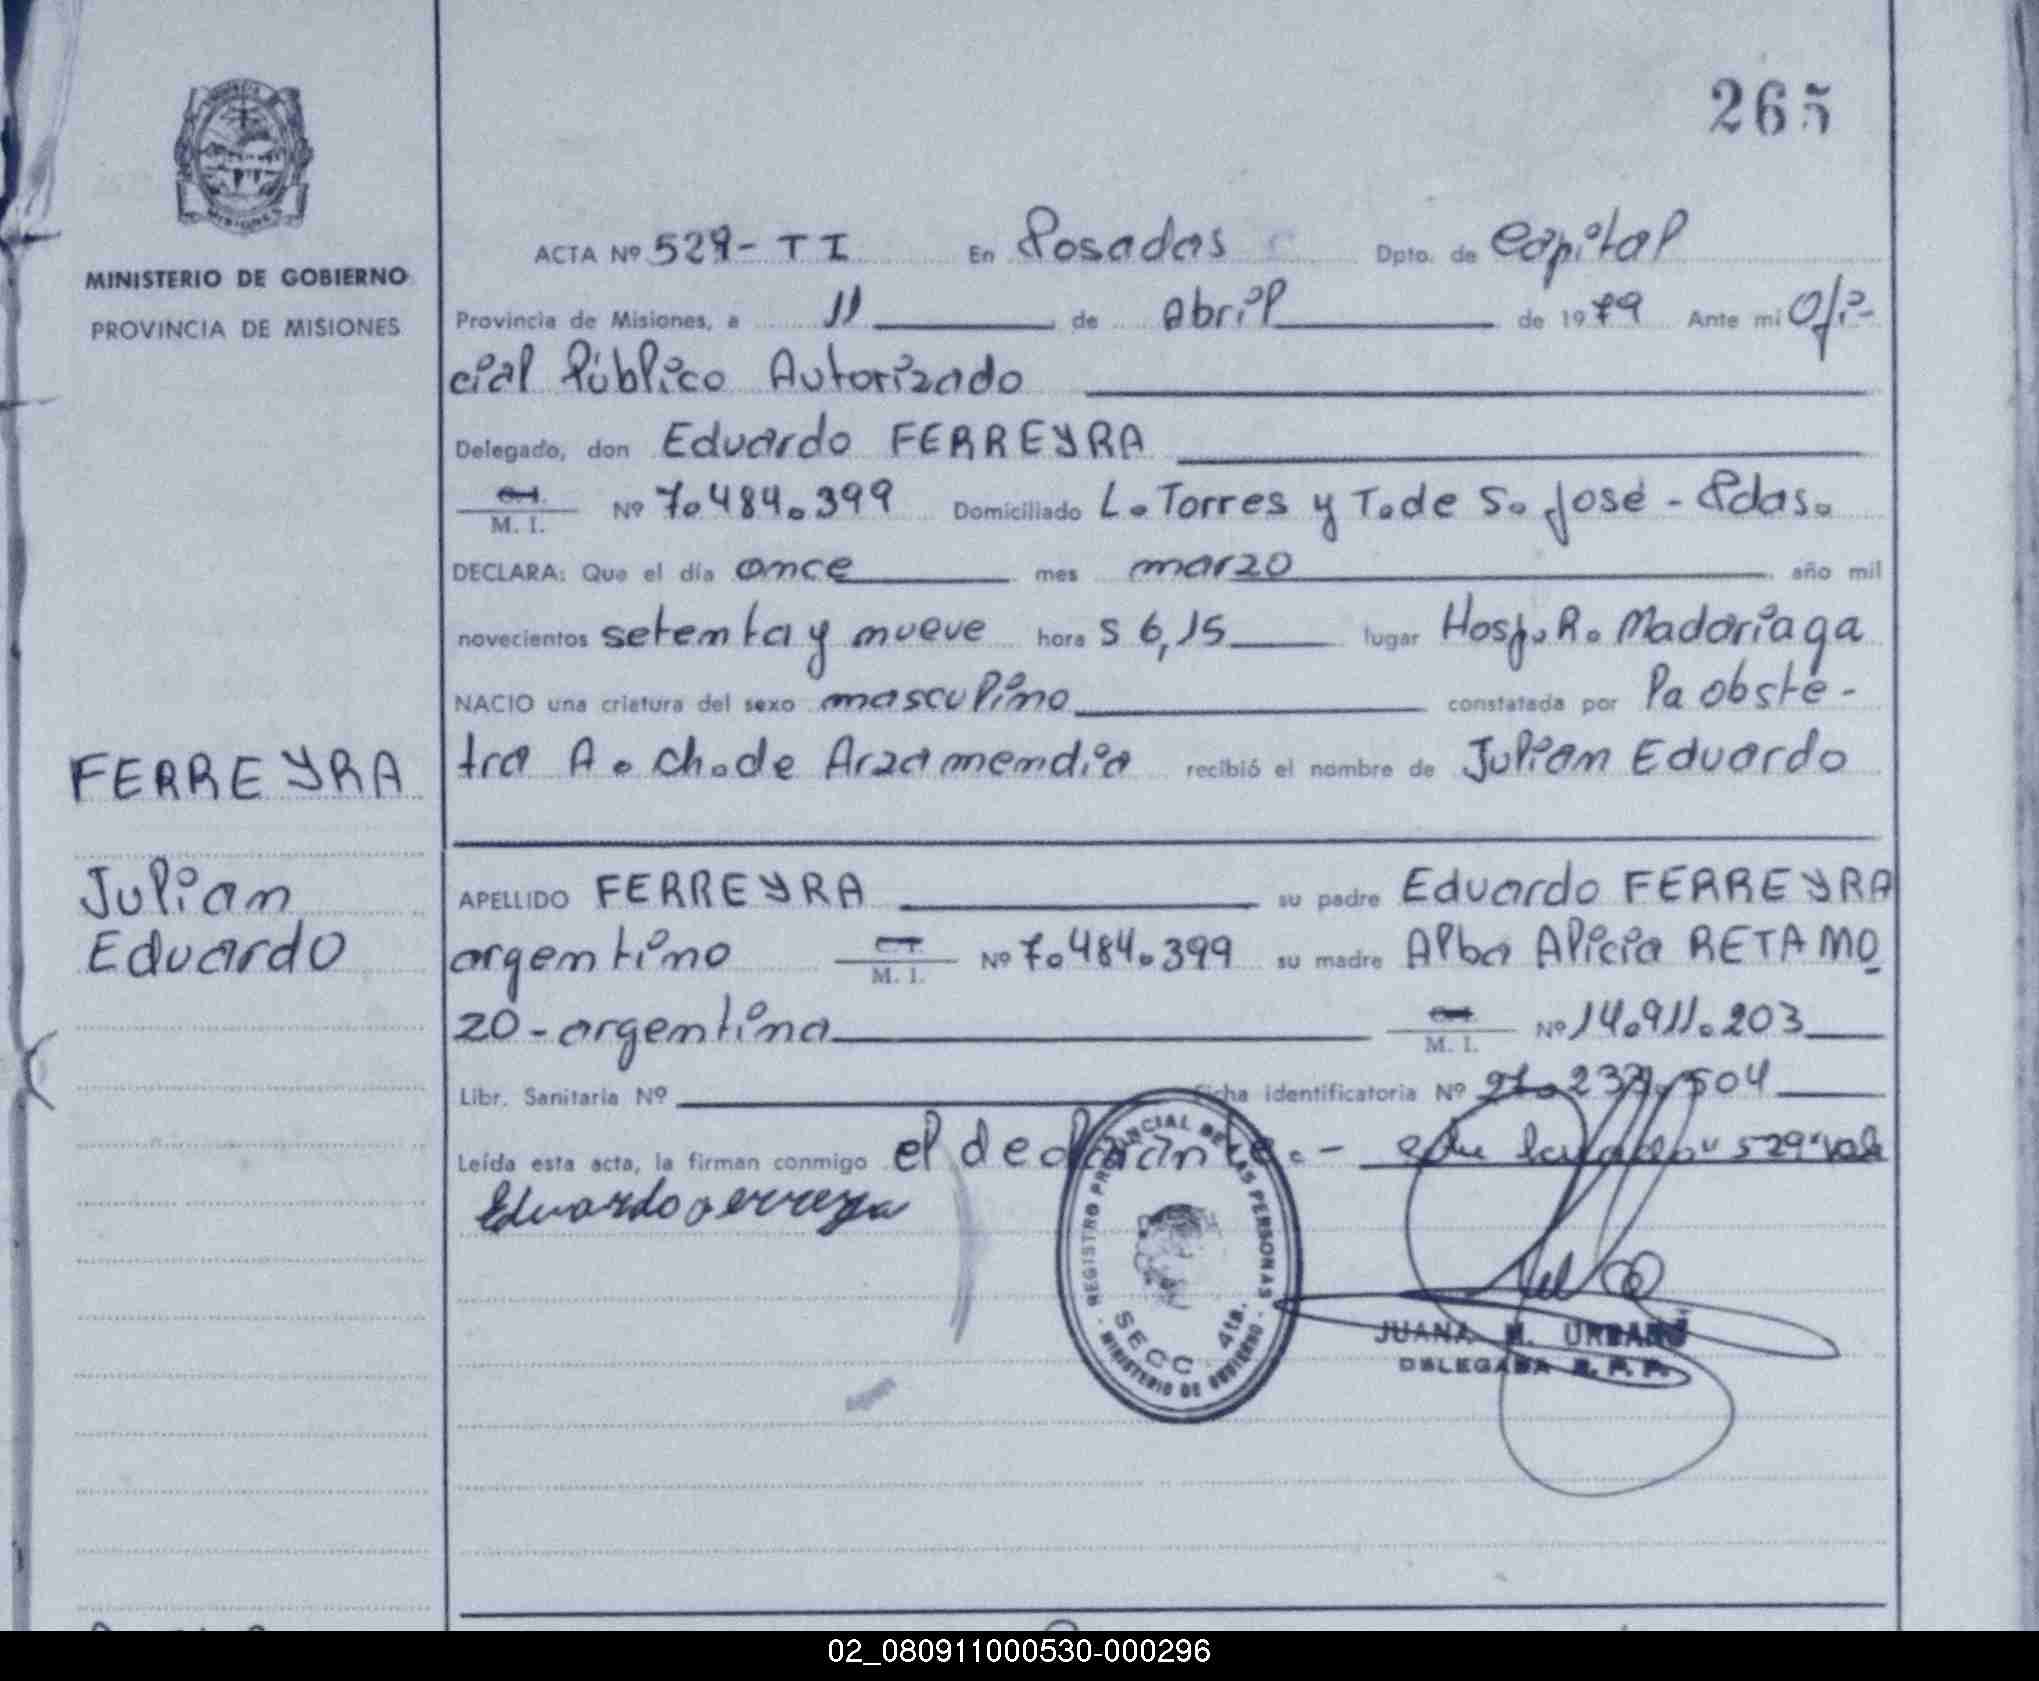 265
MISIONES
MINISTERIO DE GOBIERNO
PROVINCIA DE MISIONES
ACTA Nº 529 - T I En Posadas Dpto. de Capital
Provincia de Misiones, a 11 de Abril de 1979 Ante mi Ofi-
cial Público Autorizado
Delegado, don Eduardo FERREYRA
C.I. M. I. Nº 7.484.399 Domiciliado L. Torres y T. de S. José - Pdas.
DECLARA: Que el día once mes marzo año mil
novecientos setenta y nueve hora s 6,15 lugar Hosp. R. Madariaga
NACIO una criatura del sexo masculino constatada por la obste-
tra A. Ch. de Arzamendia recibió el nombre de Julian Eduardo
FERREYRA
Julian
Eduardo
APELLIDO FERREYRA su padre Eduardo FERREYRA
argentino C.I. M. I. Nº 7.484.399 su madre Alba Alicia RETAMO
ZO - argentina C.I. M. I. Nº 14.911.203
Libr. Sanitaria Nº Ficha identificatoria Nº 504
Leída esta acta, la firman conmigo el declarante. - "529" vale
Eduardo Ferreyra
REGISTRO PROVINCIAL DE LAS PERSONAS
SECC. 4ta.
- MINISTERIO DE GOBIERNO -
JUANA M. URBANO
DELEGADA R. P. P.
02_080911000530-000296